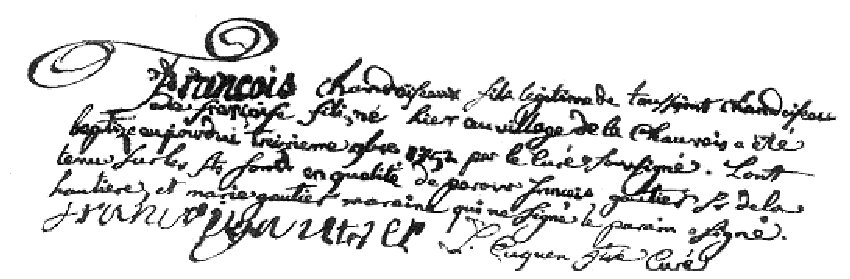 François chandoiseaux fils légitime de toussaint chandoiseau
et de françoise né hier au village de la Chauvois a été
baptizé aujourdui troizieme 9bre 1752 par le Curé soussigné. L'ont
tenu sur les sts fonds en qualité de parain francois gautier Sr de la
hautiere, et marie gautier maraine qui ne signe le parain a signé.
François gautier
Curé